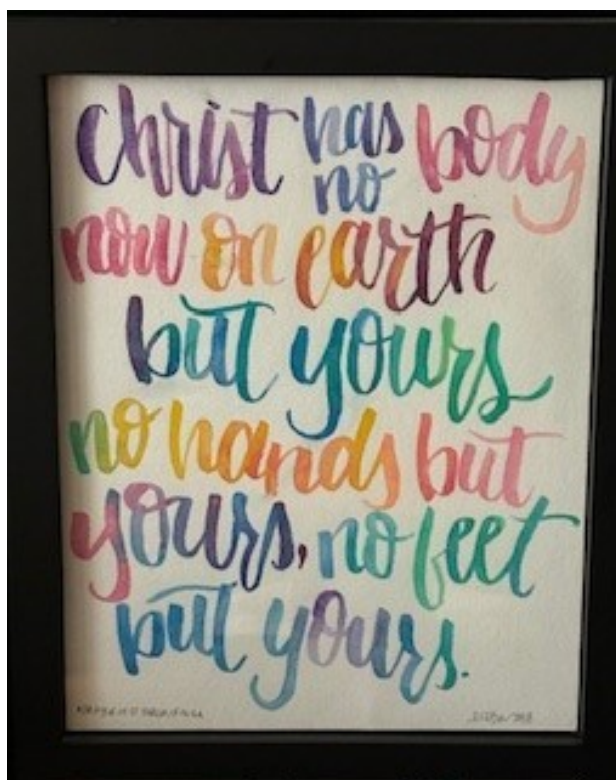 Christ has no body
now on earth
but yours
no hands but
yours, no feet
but yours.